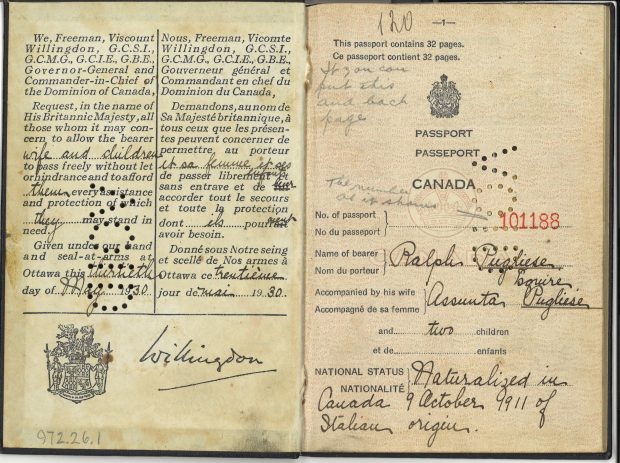 We, Freeman, Viscount
Willingdon, G.C.S.I.,
G.C.M.G., G.C.I.E., G.B.E.,
Governor-General and
Commander-in-Chief of
the Dominion of Canada,
Request, in the name of
His Britannic Majesty, all
those whom it may con-
cern to allow the bearer
wife and children
to pass freely without let
or hindrance and to afford
them every assistance
and protection of which
they may stand in
need.
Given under our hand
and seal-at-arms at
Ottawa this thirtieth
day of May 1930
Nous, Freeman, Vicomte
Willingdon, G.C.S.I.,
G.C.M.G., G.C.I.E., G.B.E.,
Gouverneur général et
Commandant en chef du
Dominion du Canada,
Demandons, au nom de
Sa Majesté britannique, à
tous ceux que les présen-
tes peuvent concerner de
permettre, au porteur
et sa femme et ses
de passer librement
sans entrave et de leur
accorder tout le secours
et toute la protection
dont ils pourraient
avoir besoin.
Donné sous Notre seing
et scellé de Nos armes à
Ottawa ce trentième
jour de mai 1930
Willingdon
972.26.1
120
—1—
This passport contains 32 pages.
Ce passeport contient 32 pages.
If you can
put this
and back
page
PASSPORT
PASSEPORT
CANADA
The number
as it shows
No. of passport
No du passeport
101188
Name of bearer
Nom du porteur
Ralph Pugliese
Squire
Accompanied by his wife
Accompagné de sa femme
Assunta Pugliese
and two children
et de enfants
NATIONAL STATUS
NATIONALITÉ
Naturalized in
Canada 9 October 1911 of
Italian origin.